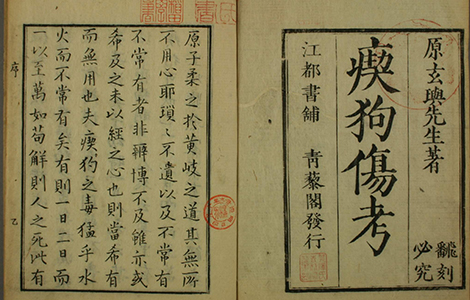 原玄與先生著
瘈狗傷考
飜刻
必究
江都書舖 青藜閣發行
原子柔之於黄岐之道其無所
不用心耶瑣〻不遺以及不常有
不常有者非辨博不及雖亦或
希及之未以經之心也則當希有
而無用也夫瘈狗之毒猛乎水
火而不常有矣有則一日二日而
一以至萬如苟解則人之死此有
序
乙